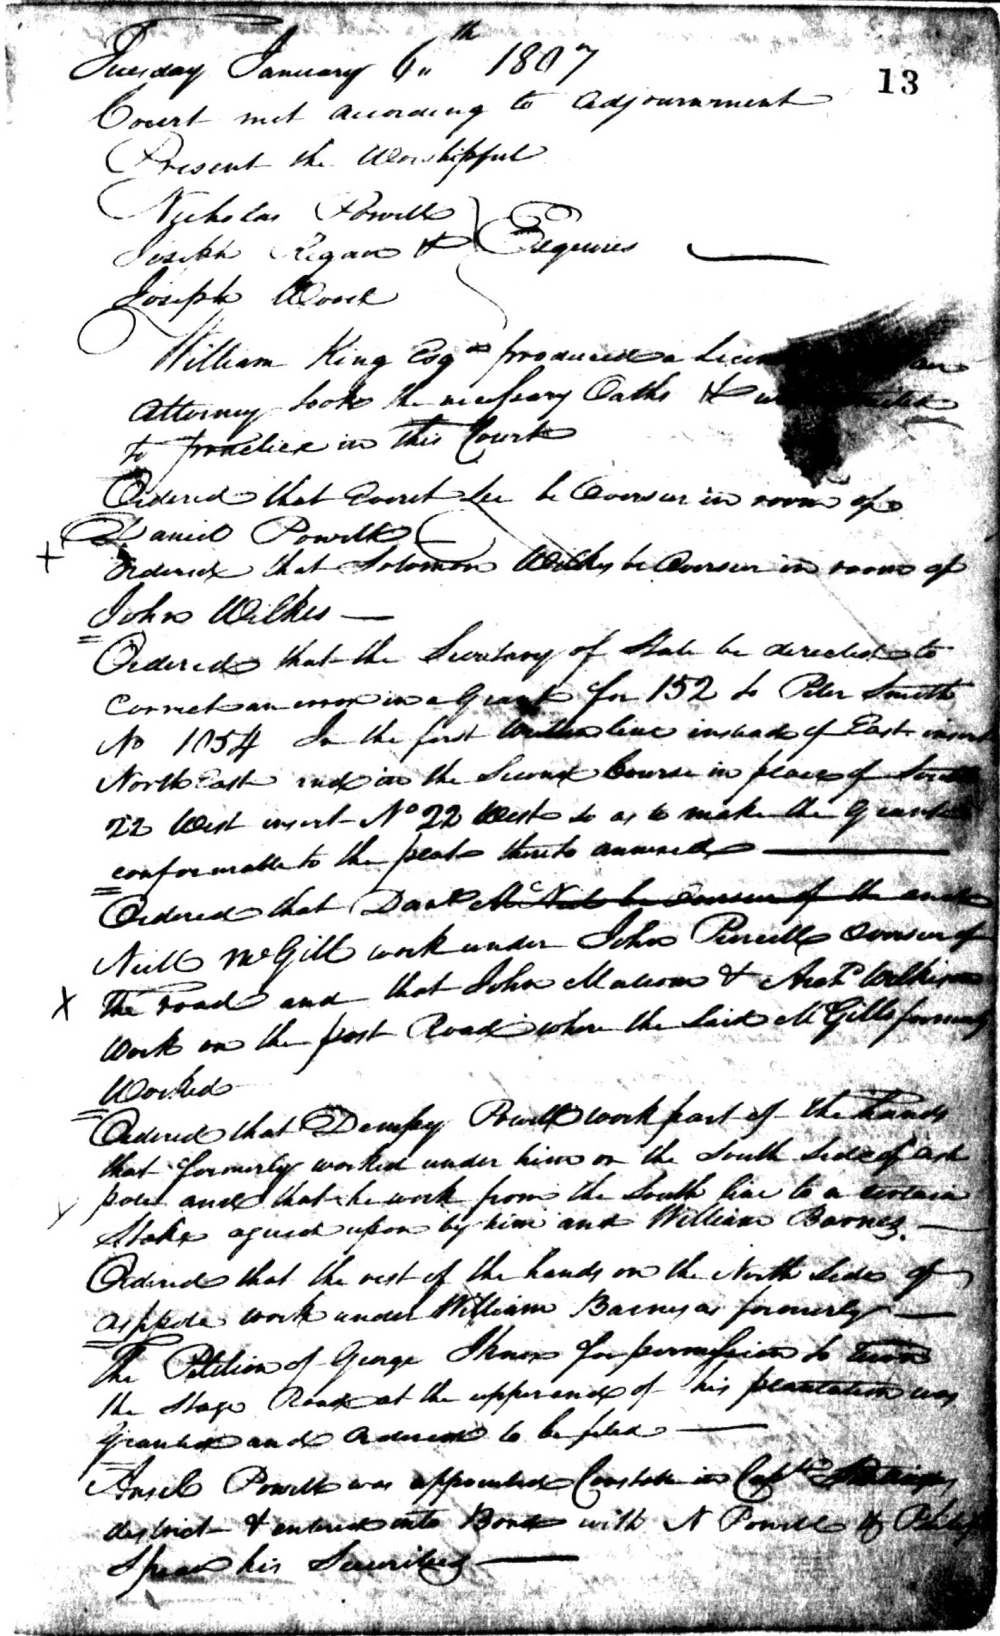 Tuesday January 6th 1807
13
Court met according to adjournment
Present the Worshipful
Nicholas Powell
Joseph Regan & Esquires
Joseph Wood
William King Esqr produced a an
Attorney took the necessary Oaths &
to practice in this Court
Ordered that Everet Lee be Overseer in room of
Daniel Powell
Ordered that Solomon be Overseer in room of
John Wilkes
Ordered that the Secretary of State be directed to
correct an error in a Grant for 152 to Peter Smith
No 1054 In the first line instead of East insert
North East and in the Second Course in place of South
22 West insert No 22 West so as to make the Grant
conformable to the plat thereto annexed
Ordered that be Overseer of the
Neill McGill work under John Purcell Overseer of
The road and that John & Archd Wilkinson
work on the post Road where the said McGills formerly
Worked
Ordered that Dempsy Powell work part of the hands
that formerly worked under him on the South Side of Ash
pole and that he work from the South line to a certain
Stake agreed upon by him and William Barnes.
Ordered that the rest of the hands on the North Side of
ashpole work under William Barnes as formerly
The Petition of George for permission to turn
the Stage Road at the upper end of his plantation was
granted and ordered to be filed
Ansel Powell was appointed Constable in Capt
district & entered into Bond with N Powell &
his Securities